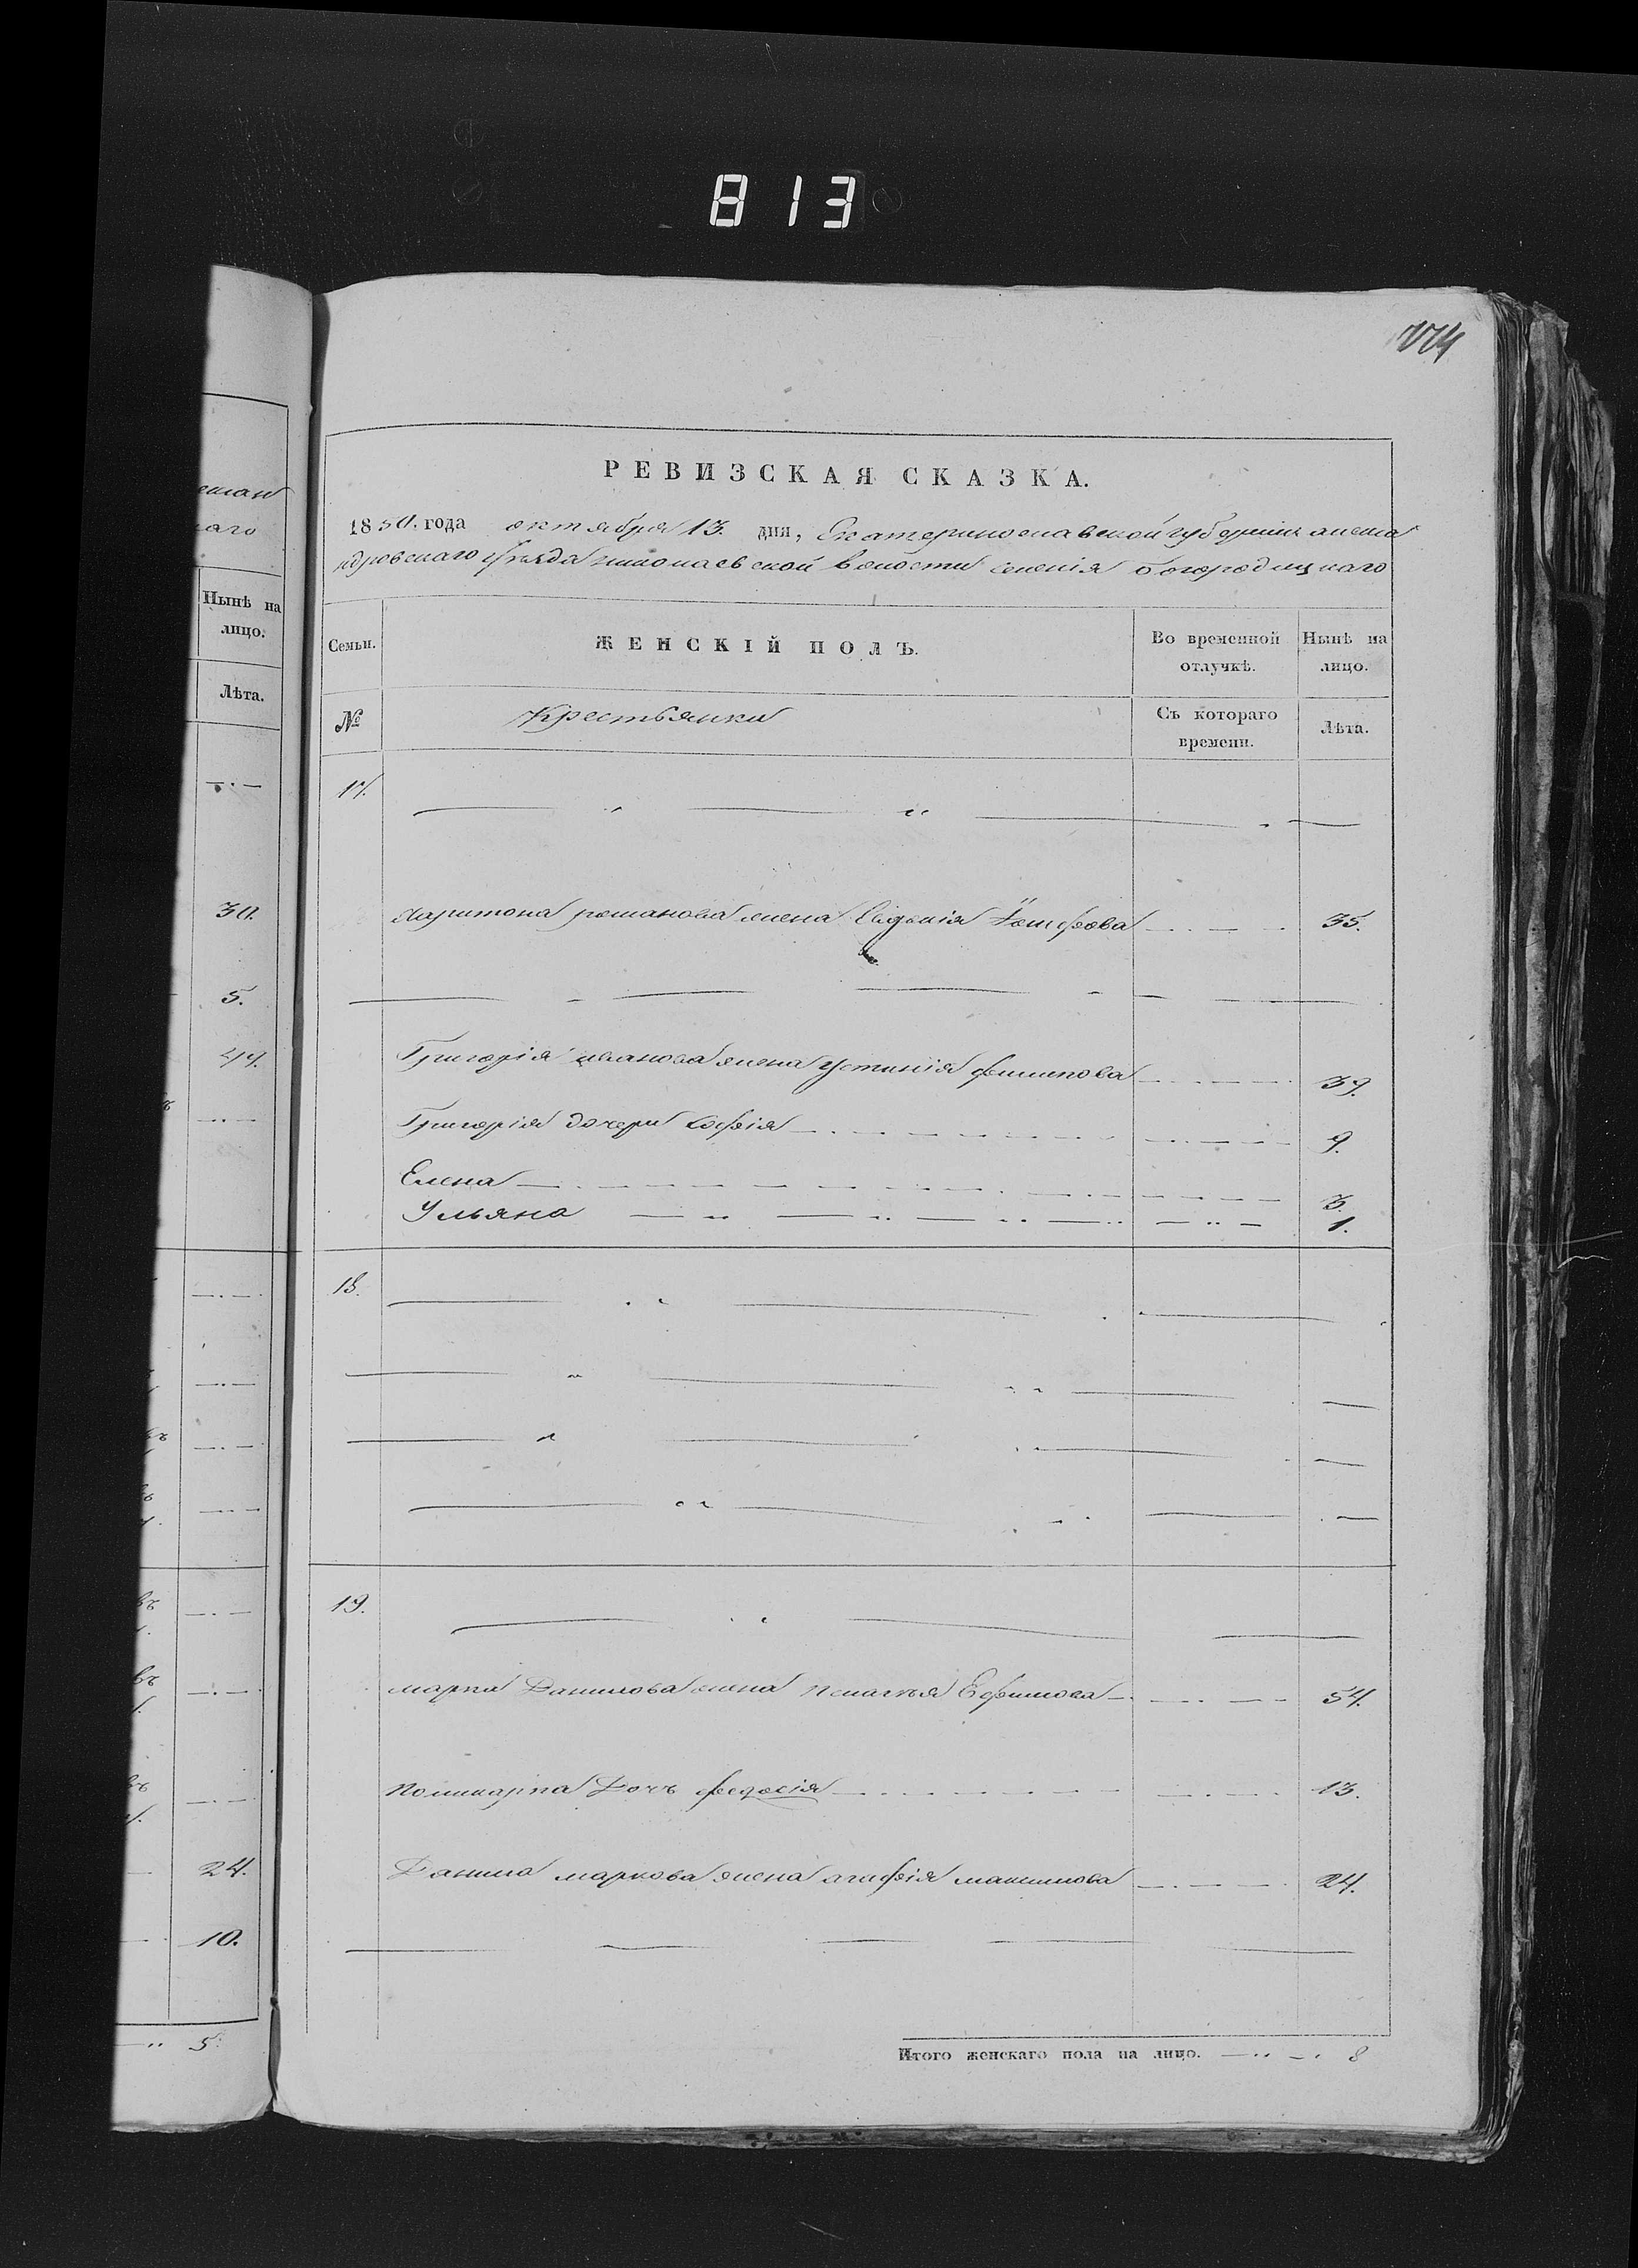 813
174
еман
аго
Нынѣ на
лицо.
Лѣта.
30.
5.
44.
24.
10.
5.
РЕВИЗСКАЯ СКАЗКА.
1850. года октября 13. дня, Екатеринославской губерніи алекса
ндровскаго уѣзда николаевской волости селенія богородицкаго
Семьи. ЖЕНСКІЙ ПОЛЪ. Во временной отлучкѣ. Нынѣ на лицо.
№ Крестьянки Съ котораго времени. Лѣта.
17.
Харитона романова жена Евдокія 35.
Григорія иванова жена Устинія филипова 39.
Григорія дочери Софія 9.
Елена 3.
Ульяна 1.
18.
19.
марка Данилова жена пелагея Ефимова 54.
поликарпа Дочь федосія 13.
Данила маркова жена агафія максимова 24.
Итого женскаго пола на лицо. 8